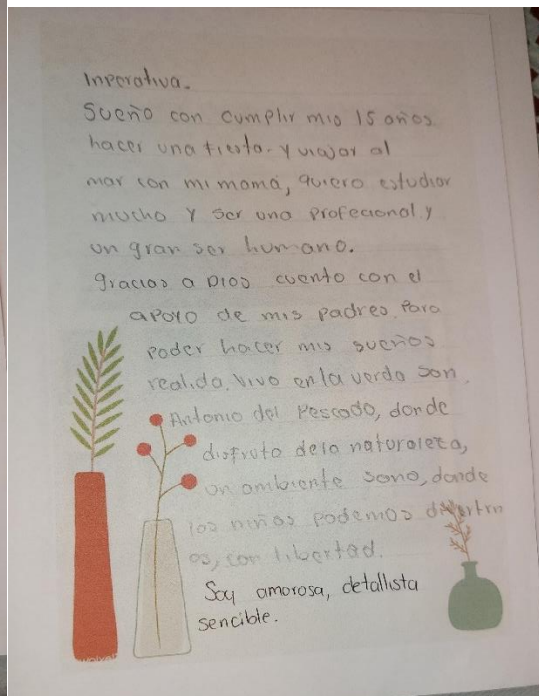 Inperativa.
Sueño con cumplir mis 15 años.
hacer una fiesta. y viajar al
mar con mi mamá, quiero estudiar
mucho y ser una profecional y
un gran ser humano.
gracias a Dios cuento con el
apoyo de mis padres. Para
poder hacer mis sueños
realida. Vivo en la verda San.
Antonio del Pescado, donde
disfruto de la naturaleza,
un ambiente sano, donde
los niños podemos divertrn
os, con libertad.
Soy amorosa, detallista
sencible.